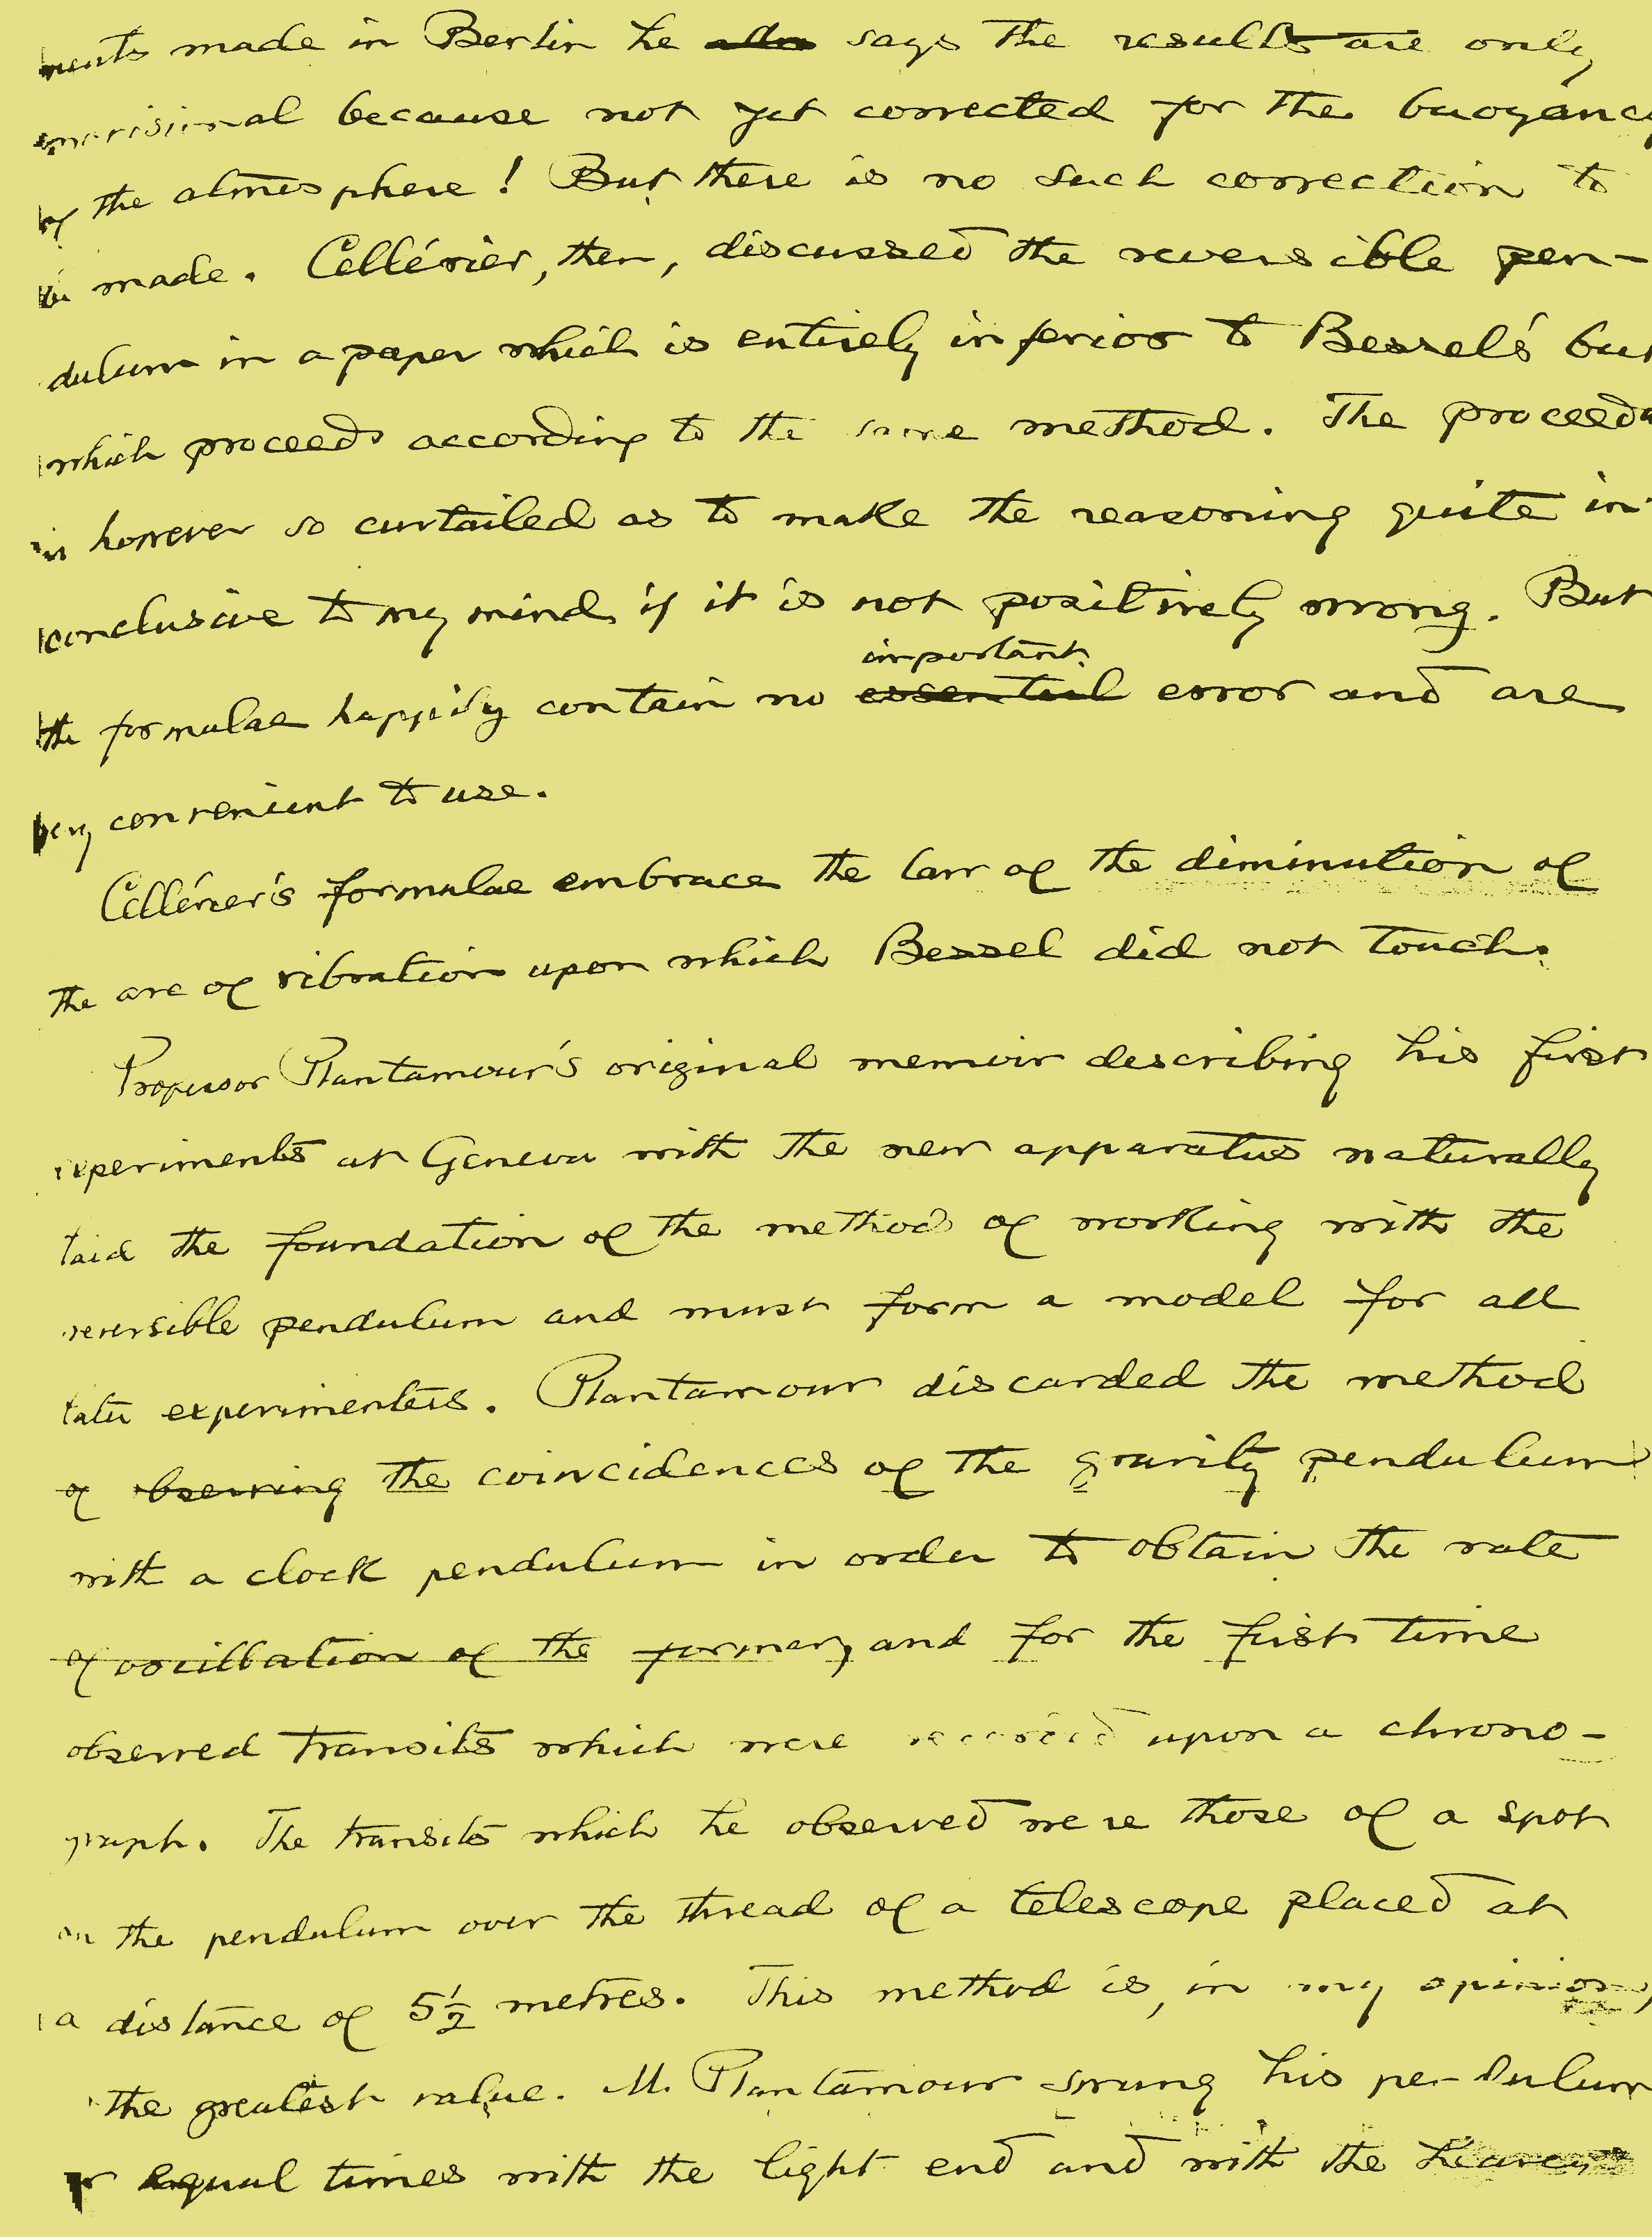 ments made in Berlin he says the results are only
provisional because not yet corrected for the buoyancy
of the atmosphere! But there is no such correction to
be made. Cellérier, then, discussed the reversible pen-
dulum in a paper which is entirely inferior to Bessel's but
which proceeds according to the same method. The proceedu
is however so curtailed as to make the reasoning quite in
conclusive to my mind if it is not positively wrong. But
important
the formulae happily contain no essential error and are
very convenient to use.
Cellérier's formulae embrace the law of the diminution of
the arc of vibration upon which Bessel did not touch.
Professor Plantamour's original memoir describing his first
experiments at Geneva with the new apparatus naturally
laid the foundation of the method of working with the
reversible pendulum and must form a model for all
later experimenters. Plantamour discarded the method
of observing the coincidences of the gravity pendulum
with a clock pendulum in order to obtain the rate
of oscillation of the former, and for the first time
observed transits which were recorded upon a chrono-
graph. The transits which he observed were those of a spot
on the pendulum over the thread of a telescope placed at
a distance of 5½ metres. This method is, in my opinion,
the greatest value. M. Plantamour swung his pendulum
for equal times with the light end and with the heavy